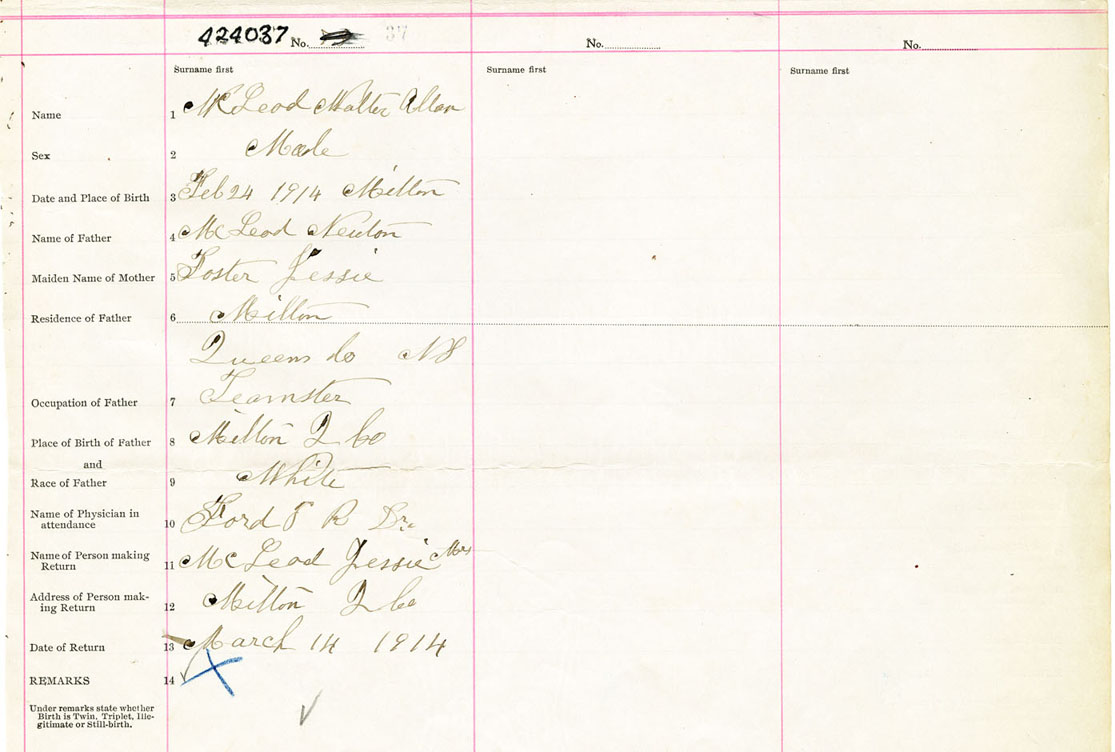 424037 No. 37 No. No.
Surname first Surname first Surname first
Name 1 McLeod Walter Allan
Sex 2 Male
Date and Place of Birth 3 Feb 24 1914 Milton
Name of Father 4 McLeod Newton
Maiden Name of Mother 5 Foster Jessie
Residence of Father 6 Milton
Queens Co NS
Occupation of Father 7 Teamster
Place of Birth of Father 8 Milton Q Co
and
Race of Father 9 White
Name of Physician in
attendance 10 Ford T R Dr.
Name of Person making
Return 11 McLeod Jessie Mrs
Address of Person mak-
ing Return 12 Milton Q Co
Date of Return 13 March 14 1914
REMARKS 14
Under remarks state whether
Birth is Twin, Triplet, Ille-
gitimate or Still-birth.